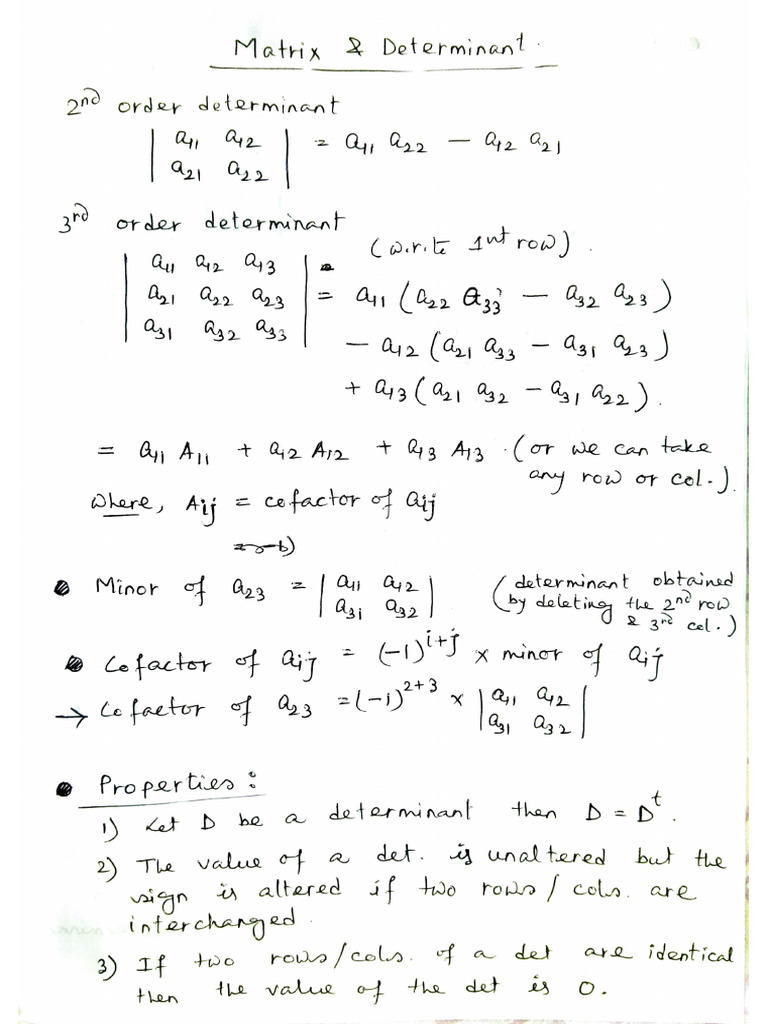 Matrix & Determinant.
2nd order determinant
| a11 a12 | = a11 a22 − a12 a21
| a21 a22 |
3rd order determinant
(w.r.t 1st row).
| a11 a12 a13 |
| a21 a22 a23 | = a11 (a22 a33 − a32 a23)
| a31 a32 a33 |
− a12 (a21 a33 − a31 a23)
+ a13 (a21 a32 − a31 a22).
= a11 A11 + a12 A12 + a13 A13 . (or we can take
any row or col.).
Where, Aij = cofactor of aij
• Minor of a23 = | a11 a12 | (determinant obtained
| a31 a32 | by deleting the 2nd row
& 3rd col.)
• Cofactor of aij = (-1)^i+j × minor of aij
→ Cofactor of a23 = (-1)^2+3 × | a11 a12 |
| a31 a32 |
• Properties:
1) Let D be a determinant then D = D^t.
2) The value of a det. is unaltered but the
sign is altered if two rows/cols. are
interchanged.
3) If two rows/cols. of a det are identical
then the value of the det is 0.